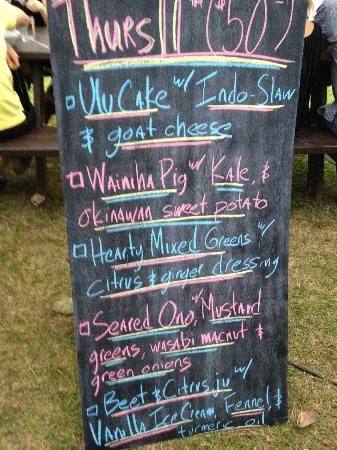 Thurs 11th ($50)
Ulu Cake w/ Indo-Slaw
& goat cheese
Wainiha Pig w/ Kale, &
okinawan sweet potato
Hearty Mixed Greens w/
citrus & ginger dressing
Seared Ono, w/ Mustard
greens, wasabi macnut &
green onions
Beet & Citrus ju w/
Vanilla Ice Cream, Fennel &
turmeric oil